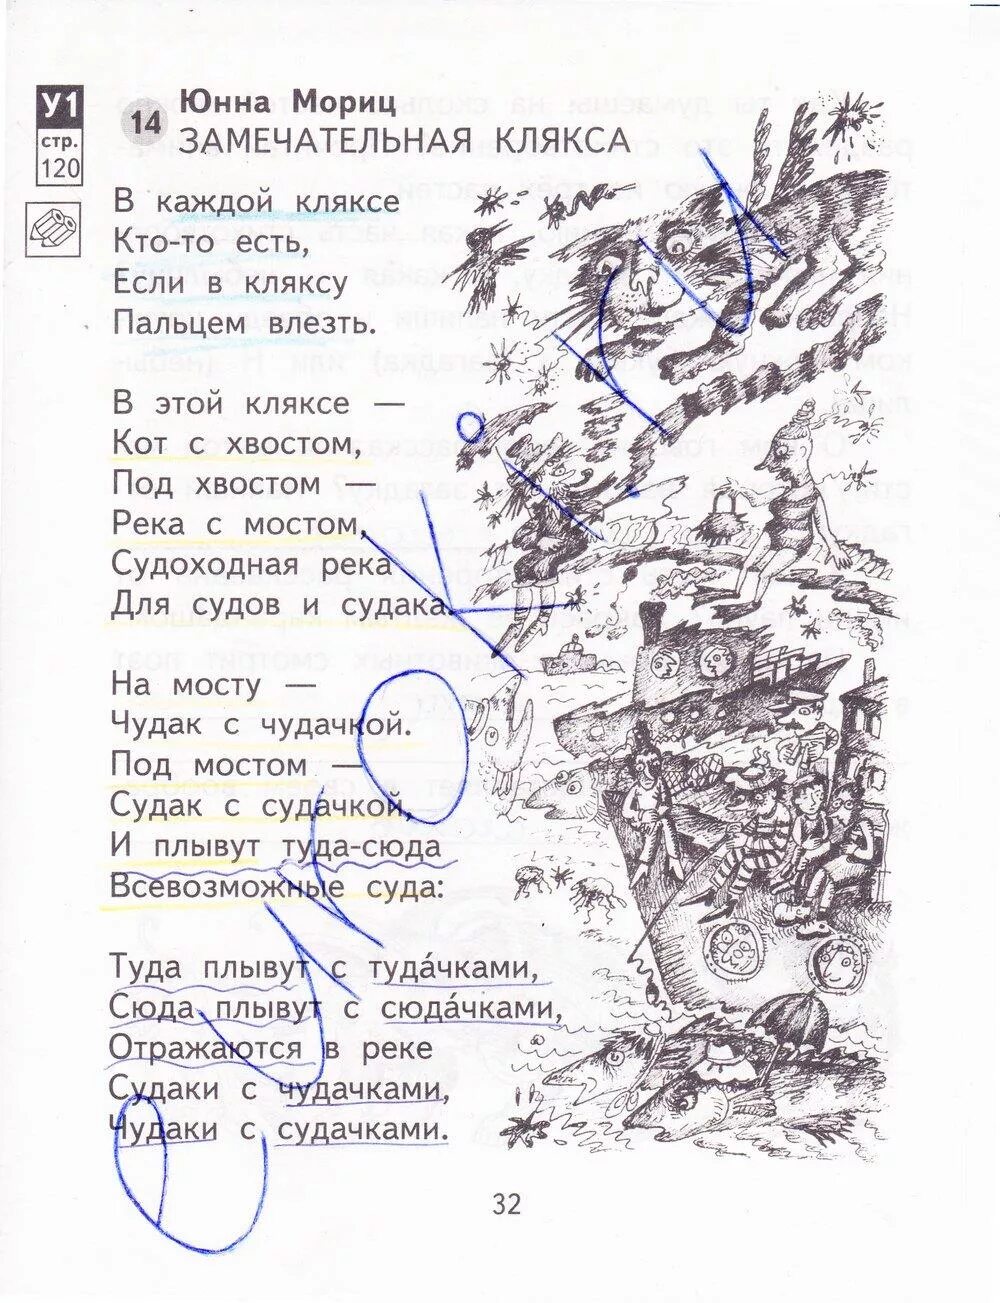 У1
стр.
120
14
Юнна Мориц
ЗАМЕЧАТЕЛЬНАЯ КЛЯКСА
В каждой кляксе
Кто-то есть,
Если в кляксу
Пальцем влезть.
В этой кляксе —
Кот с хвостом,
Под хвостом —
Река с мостом,
Судоходная река
Для судов и судака.
На мосту —
Чудак с чудачкой.
Под мостом —
Судак с судачкой,
И плывут туда-сюда
Всевозможные суда:
Туда плывут с туда́чками,
Сюда плывут с сюда́чками,
Отражаются в реке
Судаки с чудачками,
Чудаки с судачками.
32